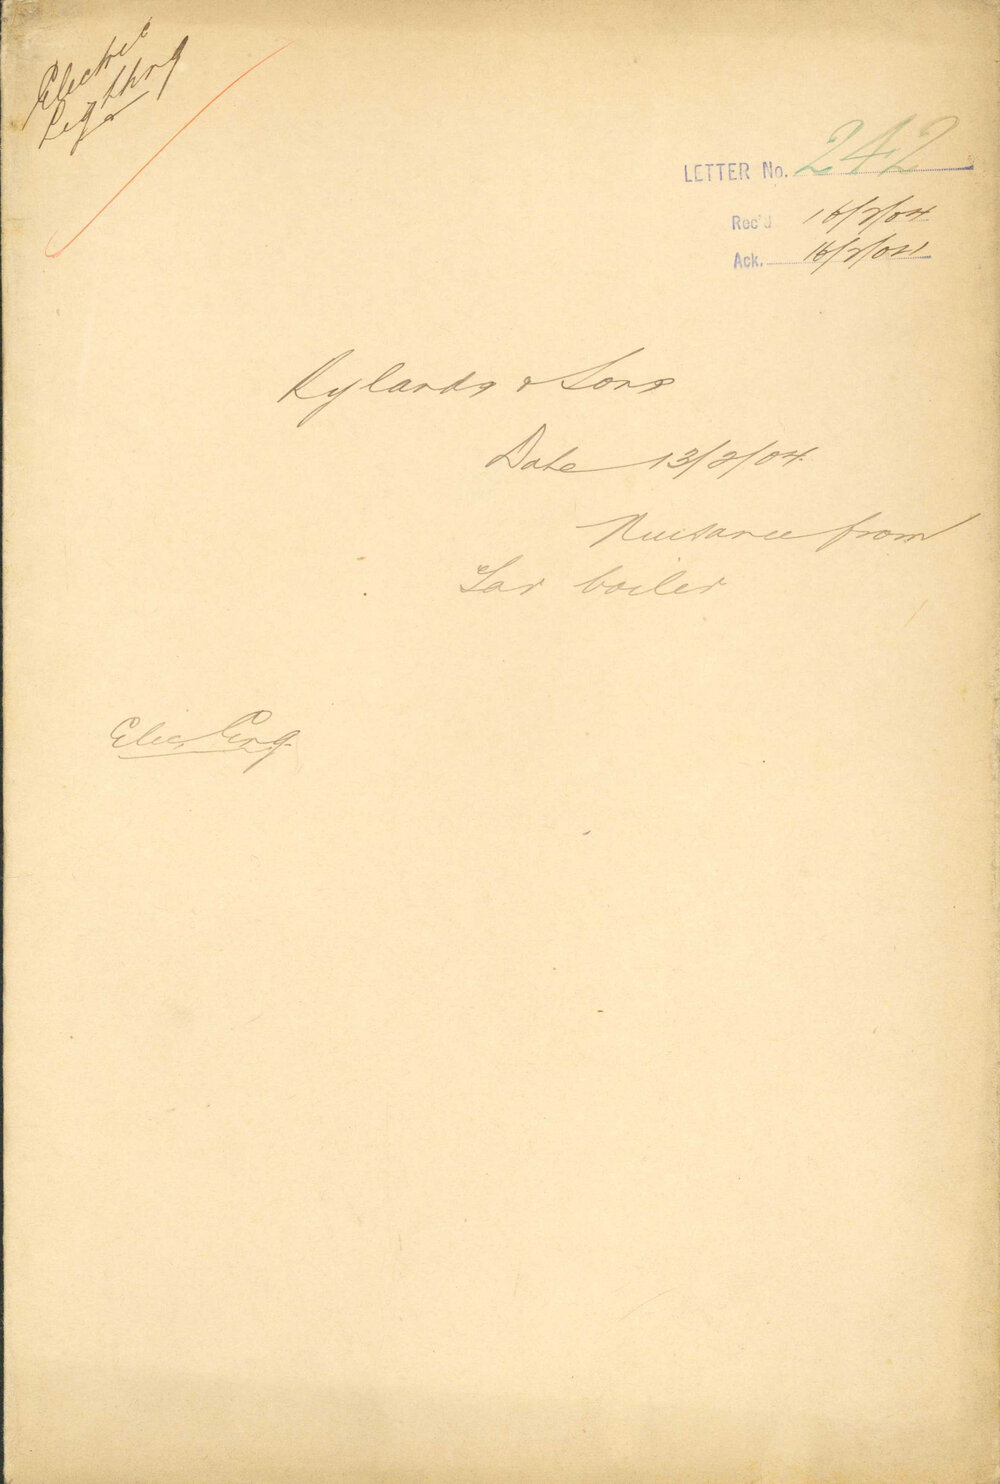 Electric
Lighting
LETTER No. 242
Rec'd 16/2/04
Ack. 16/2/04
Rylands & Sons
Date 13/2/04
Nuisance from
Tar boiler
Elec Eng